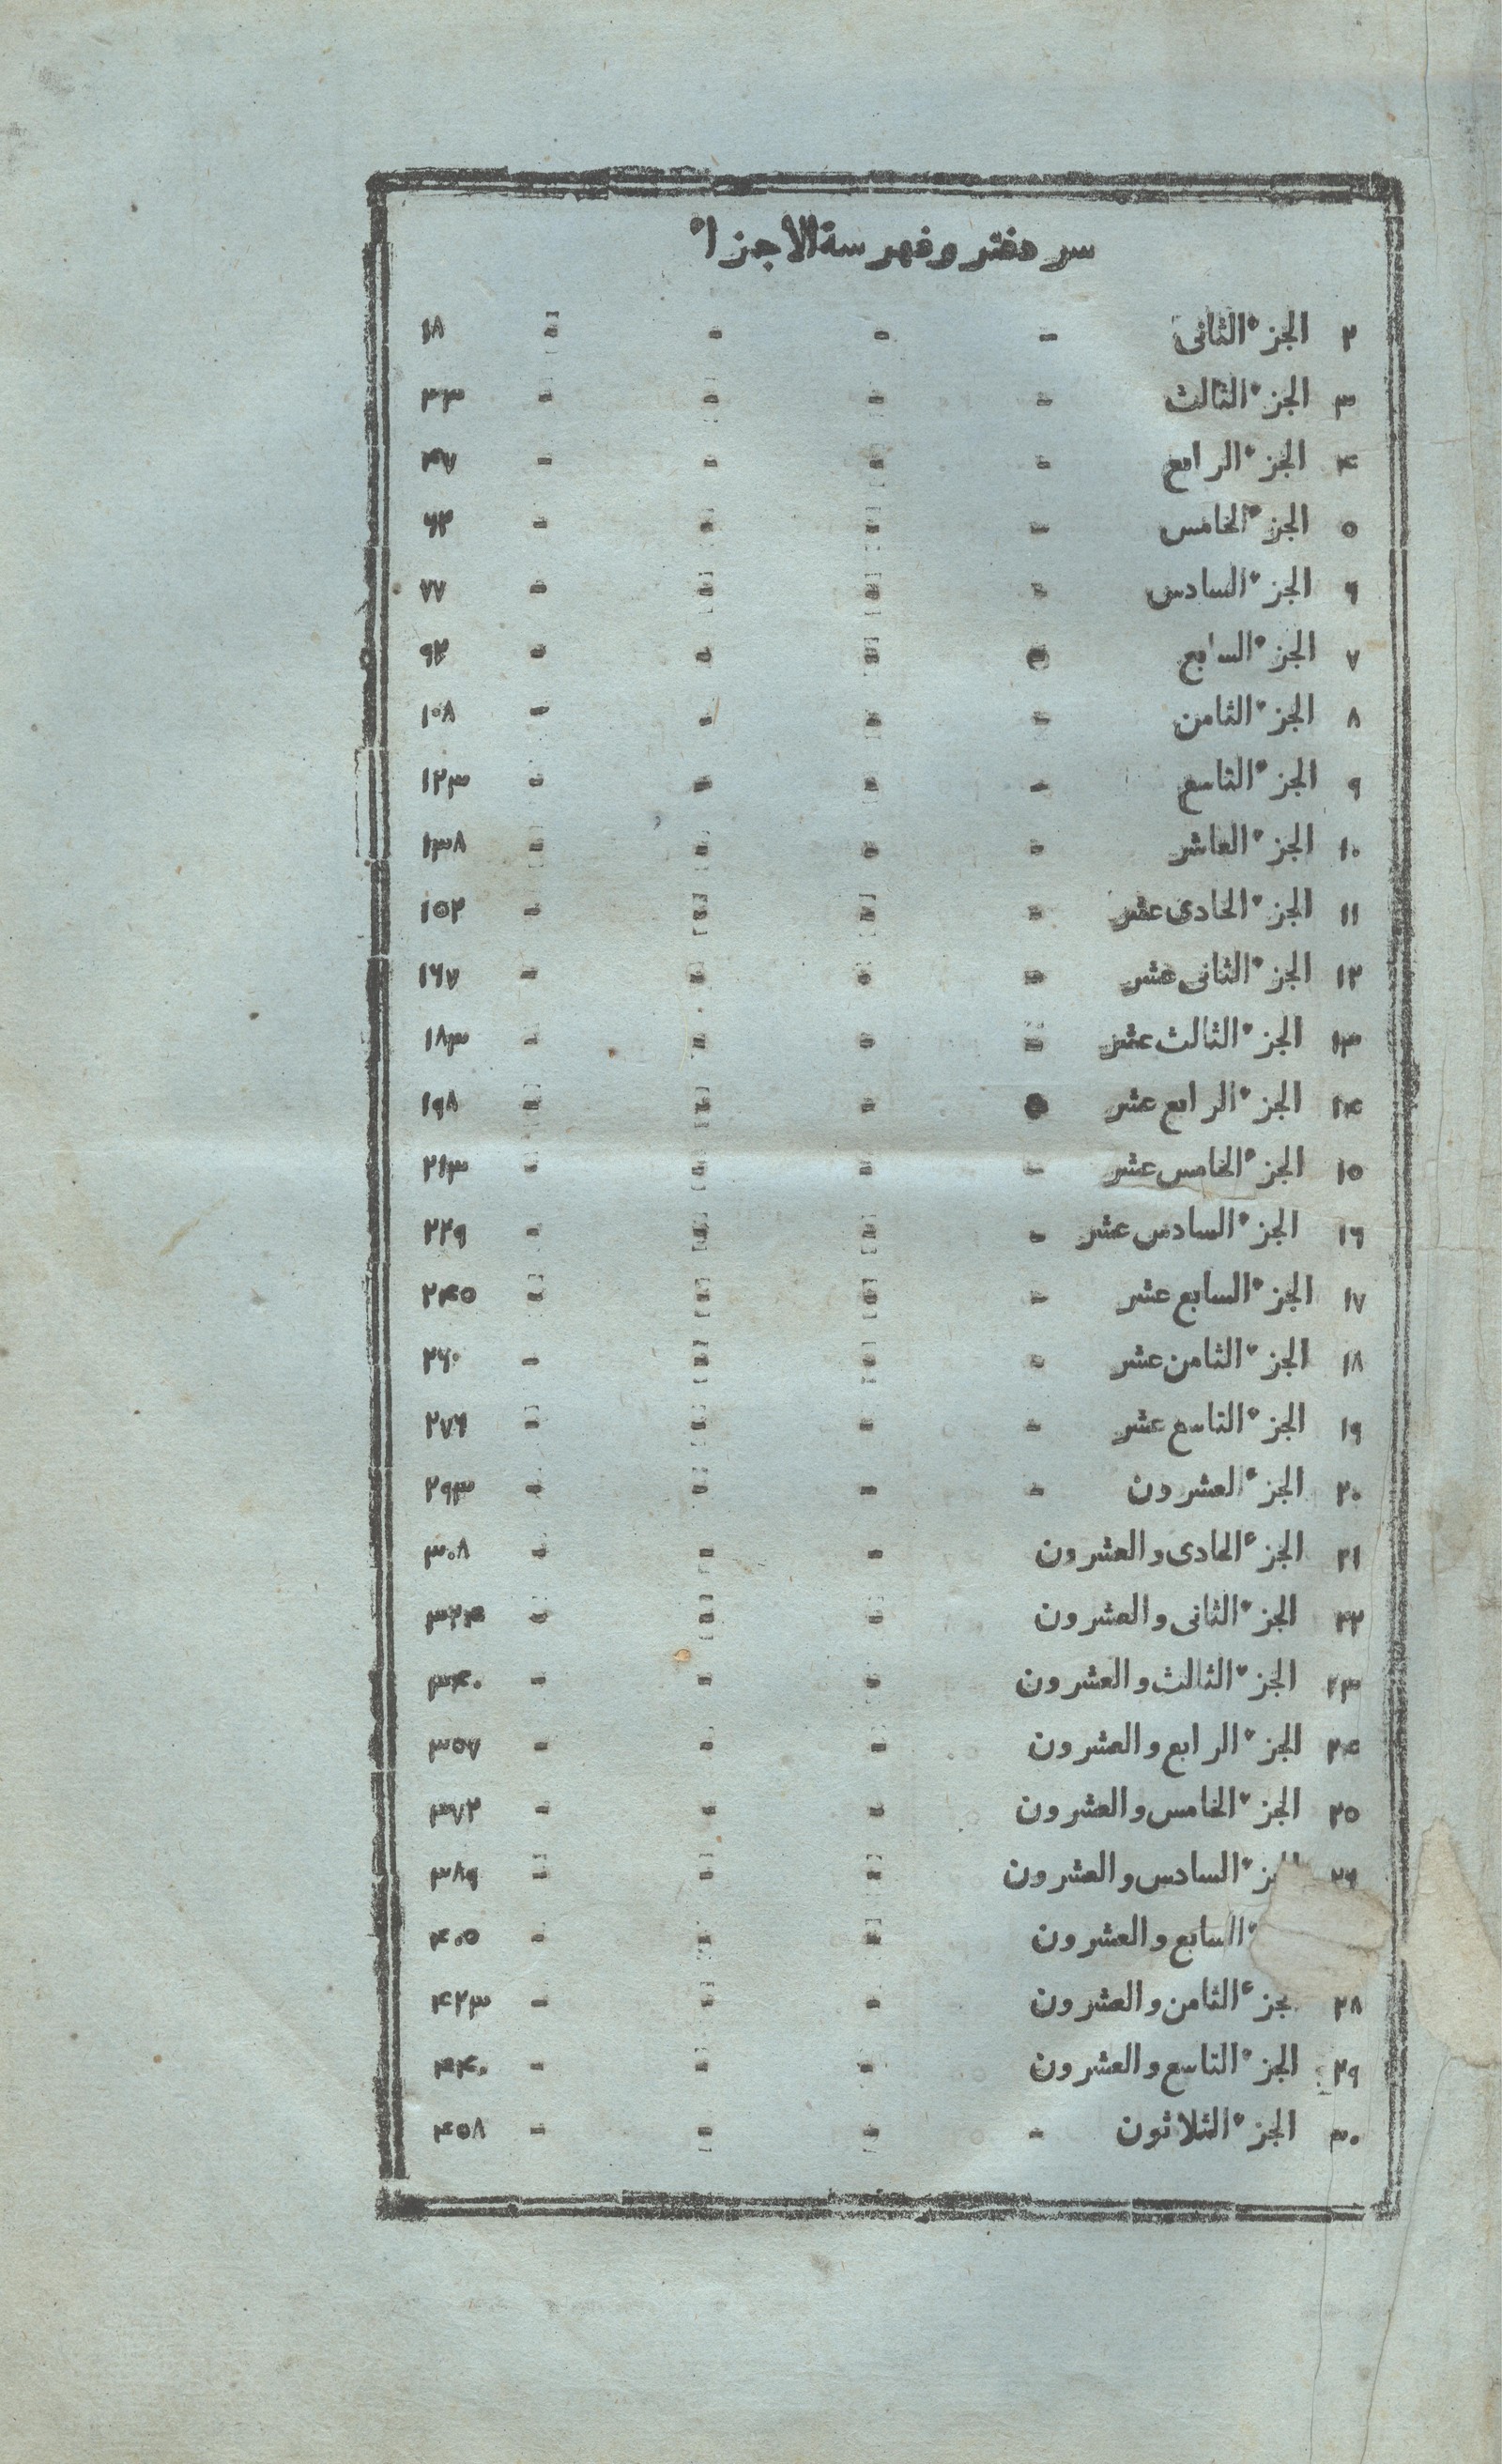 سر دفتر و فهرسة الاجزاء
٢ الجزء الثانى - - - - ١٨
٣ الجزء الثالث - - - - ٣٣
٤ الجزء الرابع - - - - ٤٧
٥ الجزء الخامس - - - - ٦٢
٦ الجزء السادس - - - - ٧٧
٧ الجزء السابع - - - - ٩٢
٨ الجزء الثامن - - - - ١٠٨
٩ الجزء التاسع - - - - ١٢٣
١٠ الجزء العاشر - - - - ١٣٨
١١ الجزء الحادى عشر - - - - ١٥٢
١٢ الجزء الثانى عشر - - - - ١٦٧
١٣ الجزء الثالث عشر - - - - ١٨٣
١٤ الجزء الرابع عشر - - - - ١٩٨
١٥ الجزء الخامس عشر - - - - ٢١٣
١٦ الجزء السادس عشر - - - - ٢٢٩
١٧ الجزء السابع عشر - - - - ٢٤٥
١٨ الجزء الثامن عشر - - - - ٢٦٠
١٩ الجزء التاسع عشر - - - - ٢٧٦
٢٠ الجزء العشرون - - - - ٢٩٣
٢١ الجزء الحادى والعشرون - - - ٣٠٨
٢٢ الجزء الثانى والعشرون - - - ٣٢٤
٢٣ الجزء الثالث والعشرون - - - ٣٤٠
٢٤ الجزء الرابع والعشرون - - - ٣٥٧
٢٥ الجزء الخامس والعشرون - - - ٣٧٢
٢٦ الجزء السادس والعشرون - - - ٣٨٩
السابع والعشرون - - - ٤٠٥
٢٨ الجزء الثامن والعشرون - - - ٤٢٣
٢٩ الجزء التاسع والعشرون - - - ٤٤٠
٣٠ الجزء الثلاثون - - - - ٤٥٨